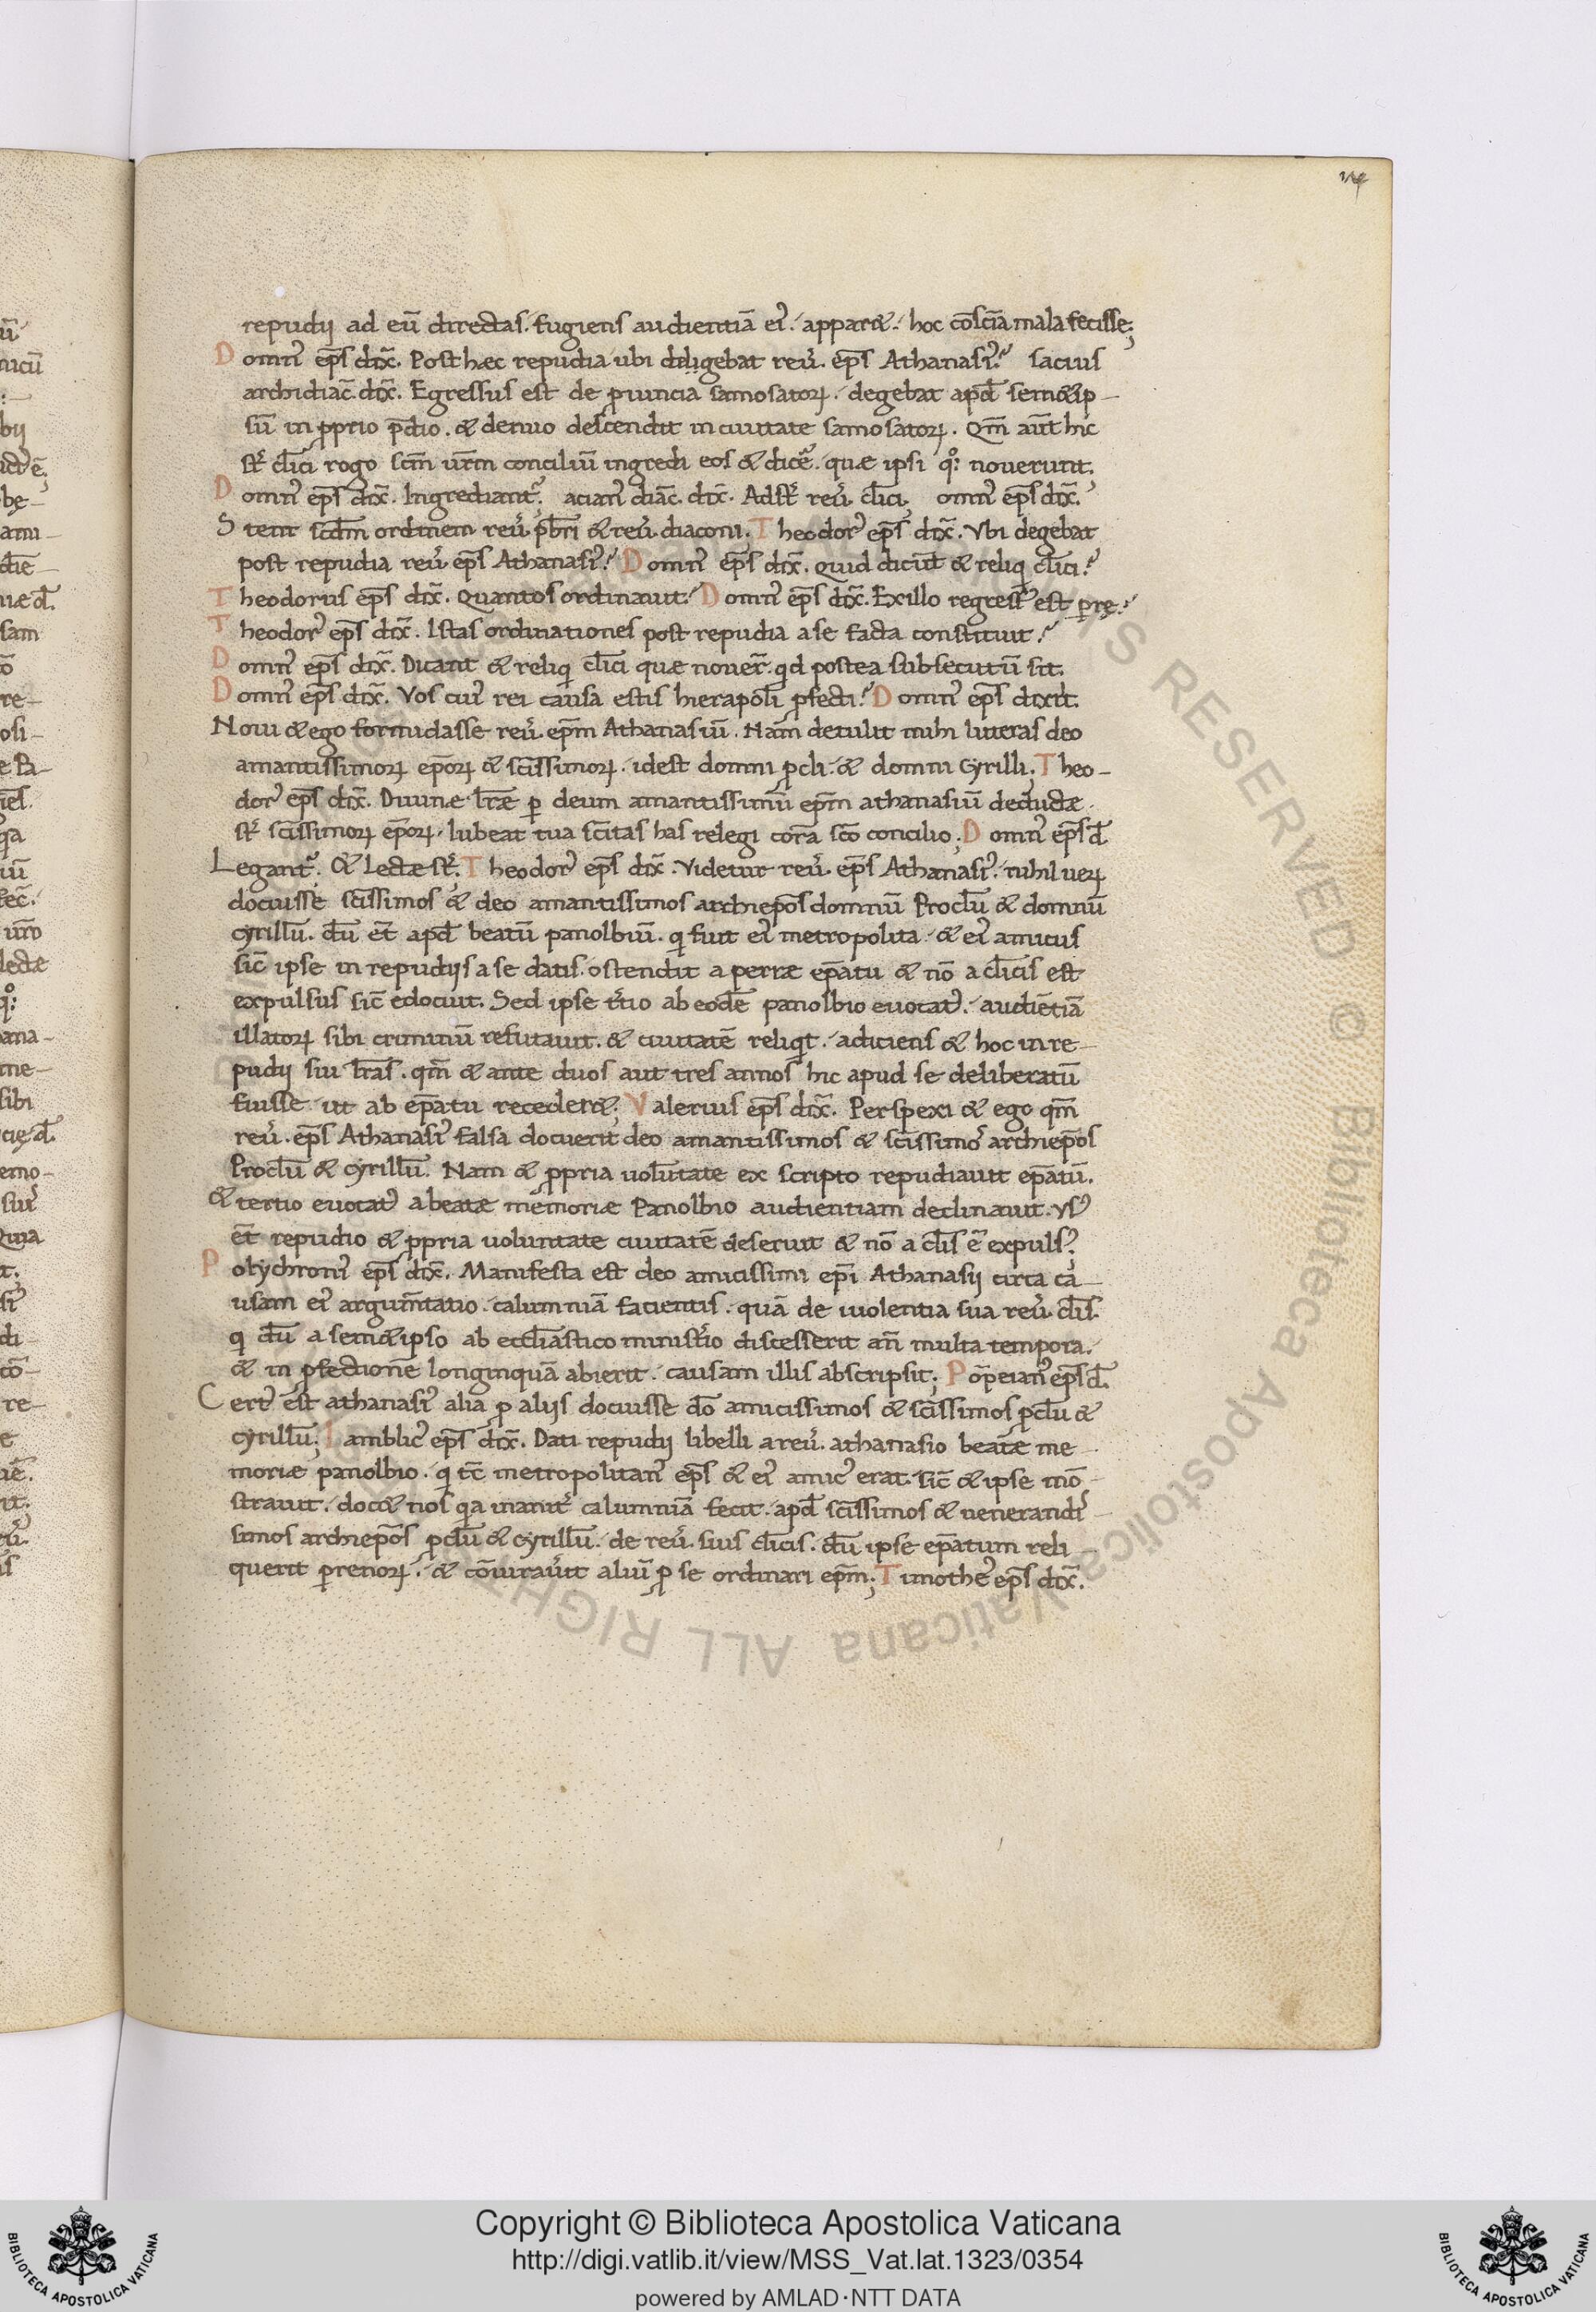 repudij ad eū directas. fugiens audientiā eiꝰ. apparet. hoc cōsciā mala fecisse;
Domnꝰ ep̄s dix̄. Post hæc repudia ubi diligebat reu̓. ep̄s Athanasiꝰ? sacius
archidiac̄. dix̄. Egressus est de ꝓuincia samosatoꝝ. degebat apd̄ semetip-
sū in ꝓprio p̄dio. & denuo descendit in ciuitate samosatoꝝ. Qm̄ aūt hic
st̄ cl̄ici rogo sc̄m ur̄m conciliū ingredi eos & dicē. quæ ipsi qͦꝫ nouerunt;
Domnꝰ ep̄s dix̄. Ingrediant᷑; acianꝰ diac̄. dix̄. Adst̄ reu̓. cl̄ici; omnꝰ ep̄s dix̄.
Stent scd̄m ordinem reu̓. p̄bri & reu̓. diaconi; Theodorꝰ ep̄s dix̄. Vbi degebat
post repudia reu̓. ep̄s Athanasiꝰ? Domnꝰ ep̄s dix̄. Quid dicūt & reliqi cl̄ici?
Theodorus ep̄s dix̄. Quantos ordinauit? Domnꝰ ep̄s dix̄. Ex illo regressꝰ est ꝑrę?
Theodorꝰ ep̄s dix̄. Istas ordinationes post repudia a se facta constituit?
Domnꝰ ep̄s dix̄. Dicant & reliqi cl̄ici quæ nouer̄. qd postea subsecutū sit.
Domnꝰ ep̄s dix̄. Vos cuiꝰ rei causa estis hierapoli ꝓfecti? Domnꝰ ep̄s dixit.
Noui & ego formidasse reu̓. ep̄m Athanasiū. Nam detulit mihi litteras deo
amantissimoꝝ ep̄oꝝ & sc̄issimoꝝ. idest domni ꝓcli. & domni Cyrilli; Theo-
dorꝰ ep̄s dix̄. Diuinæ lr̄æ ꝑ deum amantissimū ep̄m athanasiū deductæ
st̄ sc̄issimoꝝ ep̄oꝝ. Iubeat tua sc̄itas has relegi corā sc̄o concilio; Domnꝰ ep̄s d̄.
Legant᷑. & Lectæ st̄; Theodorꝰ ep̄s dix̄. Videtur reu̓. ep̄s Athanasiꝰ. nihil ueꝝ
docuisse sc̄issimos & deo amantissimos archiep̄os domnū Proclū & domnū
cyrillū. dū et̄ apd̄ beatū panolbiū. qi fuit eiꝰ metropolita. & eiꝰ amicus
sic̄ ipse in repudijs a se datis. ostendit a perræ ep̄atu & nō a cl̄icis est
expulsus sic̄ edocuit. Sed ipse t̄tio ab eodē panolbio euocatꝰ. audiētiā
illatoꝝ sibi criminū refutauit. & ciuitatē reliqit. adiciens & hoc in re-
pudij sui lr̄as. qm̄ & ante duos aut tres annos hic apud se deliberatū
fuisse ut ab ep̄atu recederet; Valerius ep̄s dix̄. Perspexi & ego qm̄
reu̓. ep̄s Athanasiꝰ falsa docuerit deo amantissimos & sc̄issimoˢ archiep̄os
Proclū & cyrillū. Nam & ꝓpria uolūtate ex scripto repudiauit ep̄atū.
& tertio euocatꝰ a beatæ memoriæ Panolbio audientiam declinauit. Vn̄
et̄ repudio & ꝓpria uoluntate ciuitatē deseruit & nō a cl̄is ē expulsꝰ;
Polychroniꝰ ep̄s dix̄. Manifesta est deo amicissimi ep̄i Athanasij circa ca-
usam eiꝰ argum̄tatio. calumniā facientis. quā de uiolentia sua reu̓. cl̄is.
qi dū a semetipso ab eccl̄iastico minist̄io discesserit an̄ multa tempora.
& in ꝓfectionē longinquā abierit. causam illis abscripsit; Pōpeianꝰ ep̄s d̄.
Certꝰ est athanasiꝰ alia ꝓ alijs docuisse dō amicissimos & sc̄issimos ꝓclū &
cyrillū; Iamblicꝰ ep̄s dix̄. Dati repudij libelli a reu̓. athanasio beatæ me
moriæ panolbio. qi tc̄ metropolitanꝰ ep̄s & eiꝰ amicꝰ erat. sic̄ & ipse mō-
strauit. docet nos qa inanit̓ calumniā fecit. apd̄ sc̄issimos & uenerandiˢ-
simos archiep̄os ꝓclū & cyrillū. de reu̓. suis cl̄icis. dū ipse ep̄atum reli-
querit ꝑrenoꝝ. & cōiurauit aliū ꝓ se ordinari ep̄m; Timotheꝰ ep̄s dix̄.
Copyright © Biblioteca Apostolica Vaticana
http://digi.vatlib.it/view/MSS_Vat.lat.1323/0354
powered by AMLAD·NTT DATA